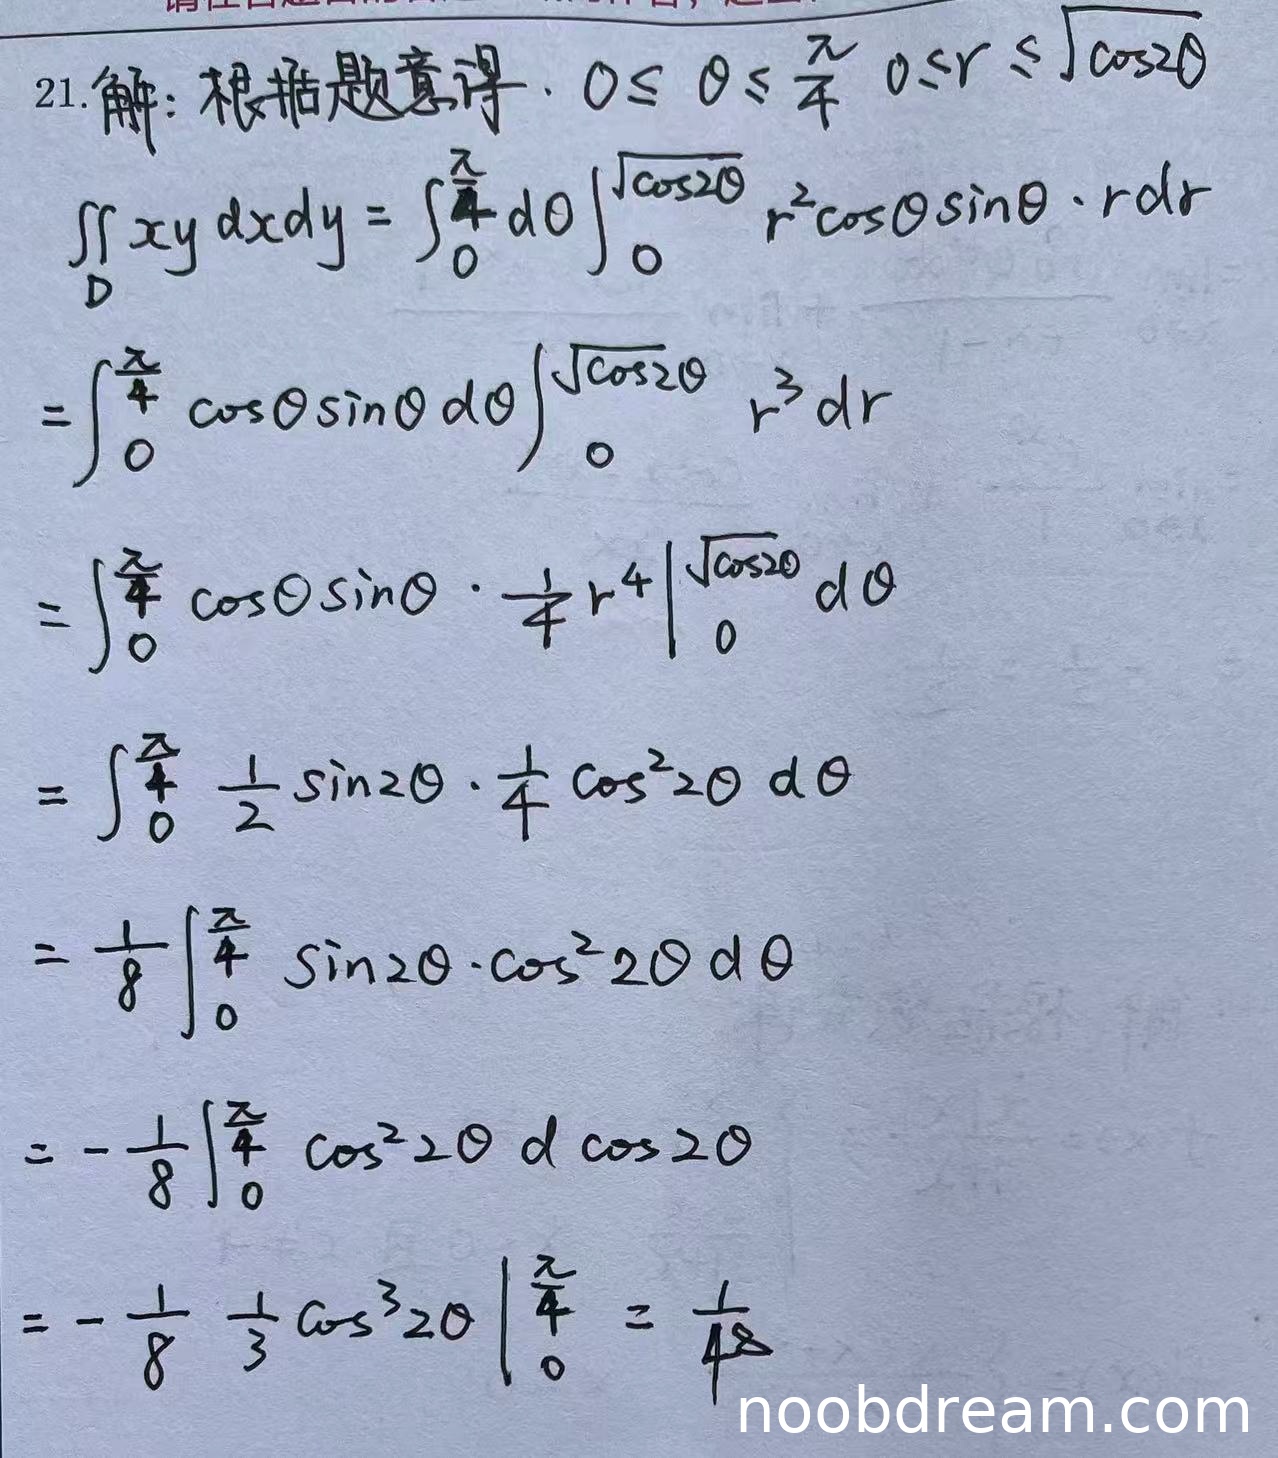 21. 解：根据题意得. 0≤ θ ≤ π/4 0≤r ≤ √cos2θ
∬_D xy dxdy = ∫_0^{π/4} dθ ∫_0^{√cos2θ} r²cosθsinθ · rdr
= ∫_0^{π/4} cosθsinθ dθ ∫_0^{√cos2θ} r³dr
= ∫_0^{π/4} cosθsinθ · 1/4 r⁴ |_0^{√cos2θ} dθ
= ∫_0^{π/4} 1/2 sin2θ · 1/4 cos²2θ dθ
= 1/8 ∫_0^{π/4} sin2θ·cos²2θ dθ
= - 1/8 ∫_0^{π/4} cos²2θ d cos2θ
= - 1/8 1/3 cos³2θ |_0^{π/4} = 1/48
noobdream.com